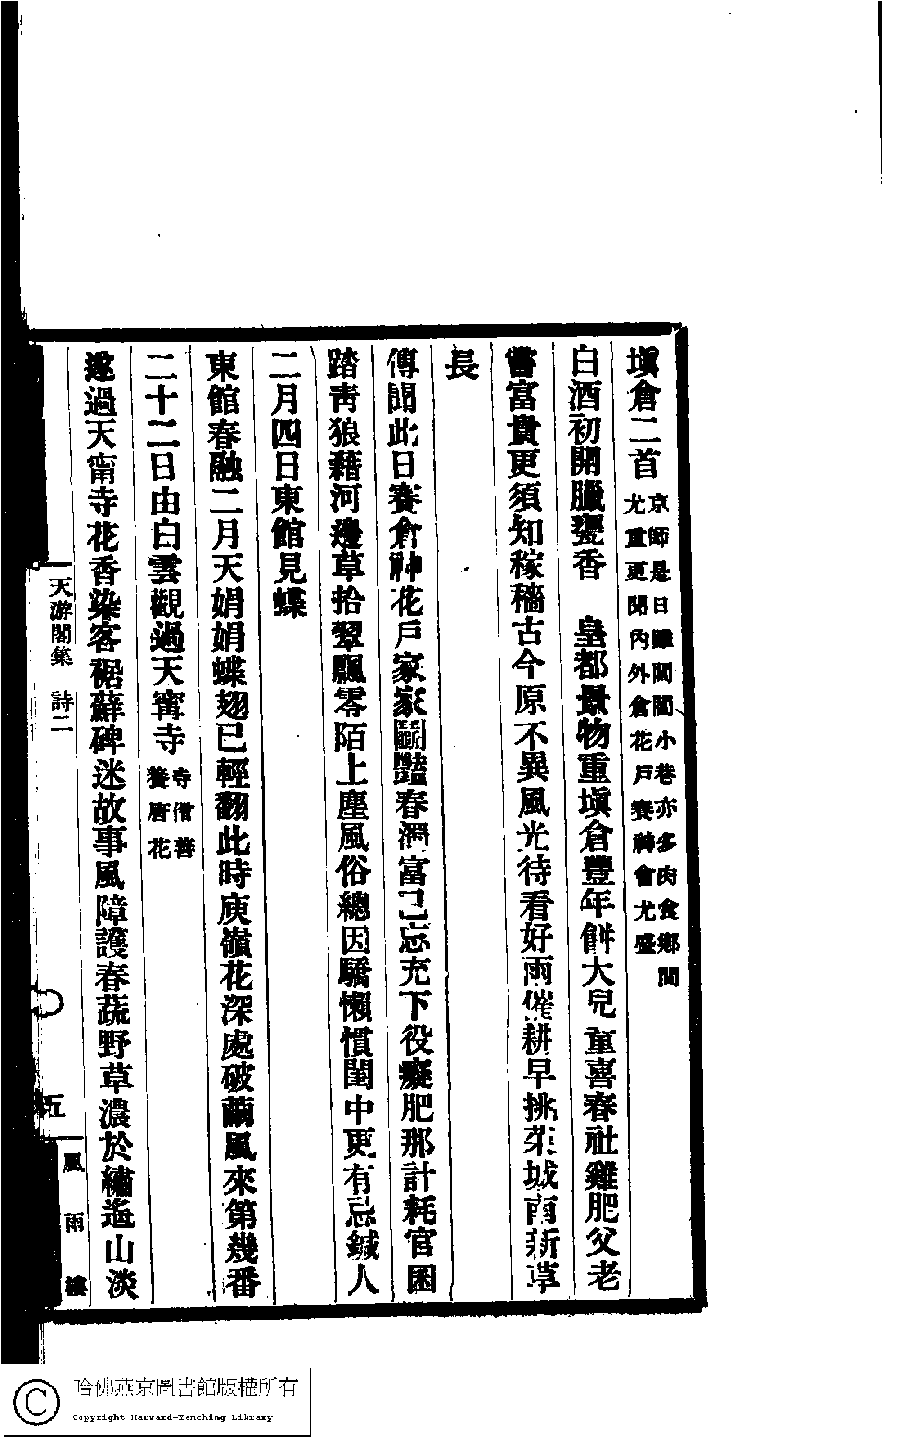 塡倉二首 京師是日雖閭閻小巷亦多肉食鄉間
尤重更聞內外倉花戶賽神會尤盛
白酒初開臘甕香　皇都景物重塡倉豐年餠大兒童喜春社雞肥父老
嘗富貴更須知稼穡古今原不異風光待看好雨催耕早挑菜城南新草
長
傳聞此日賽倉神花戶家家鬭豔春潤富已忘充下役癡肥那計耗官囷
踏靑狼藉河邊草拾翠飄零陌上塵風俗總因驕懶慣閨中更有忌鍼人
二月四日東館見蝶
東館春融二月天娟娟蝶翅已輕翻此時庾嶺花深處破繭風來第幾番
二十二日由白雲觀過天甯寺 寺僧善
養唐花
遂過天甯寺花香染客裾蘚碑迷故事風障護春蔬野草濃於繡遙山淡
天游閣集　詩二　五　風雨樓
哈佛燕京圖書館版權所有
Copyright Harvard-Yenching Library